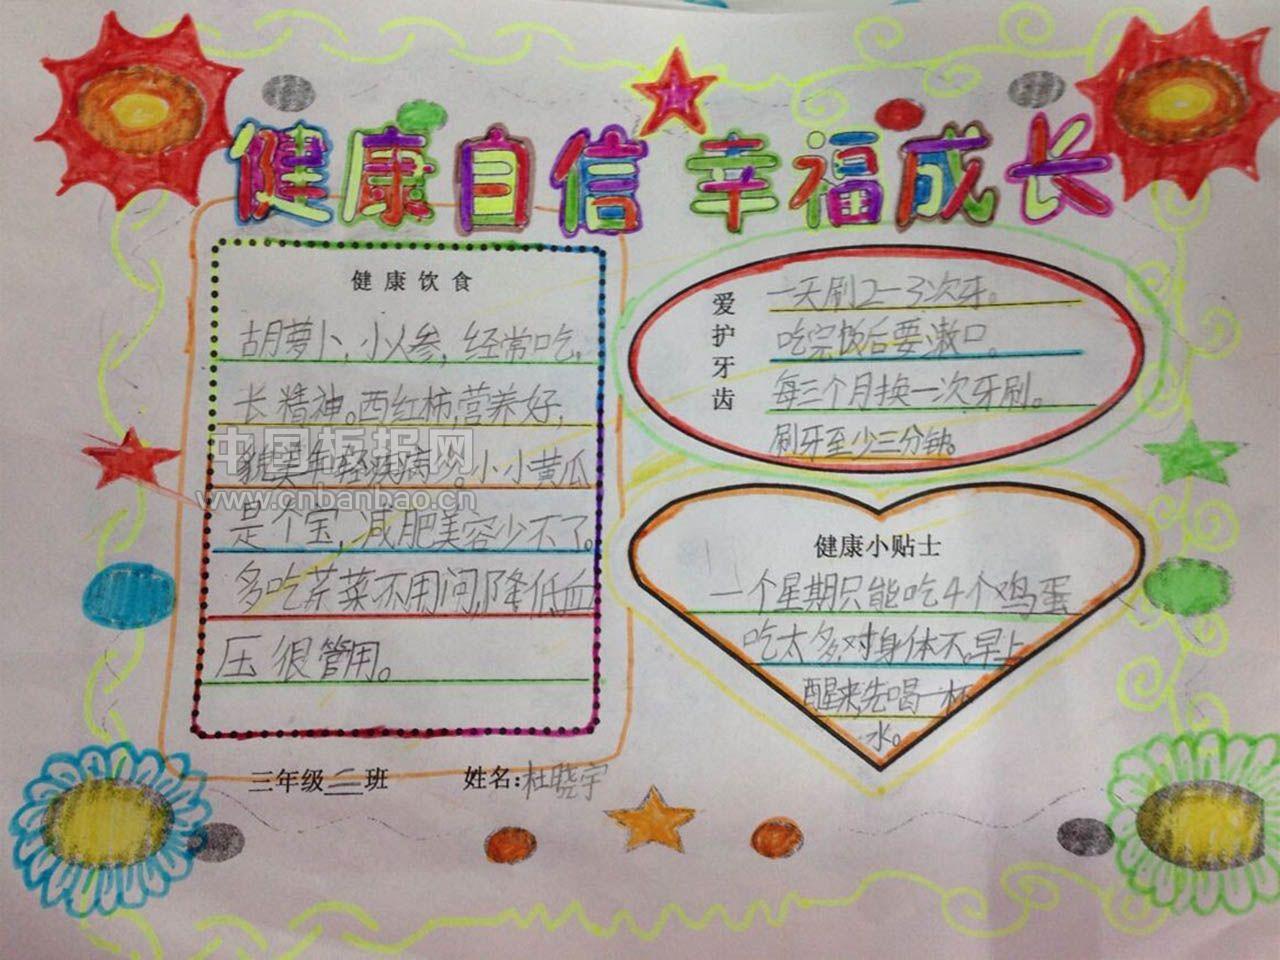 健康自信 幸福成长
健康饮食
胡萝卜,小人参,经常吃,
长精神。西红柿,营养好,
貌美年轻疾病少。小小黄瓜
是个宝,减肥美容少不了。
多吃芹菜不用问,降低血
压很管用。
爱护牙齿
一天刷2-3次牙。
吃完饭后要漱口。
每三个月换一次牙刷。
刷牙至少三分钟。
健康小贴士
一个星期只能吃4个鸡蛋
吃太多,对身体不。早上
醒来先喝一杯
水。
三年级二班 姓名:杜晓宇
中国板报网
www.cnbanbao.cn